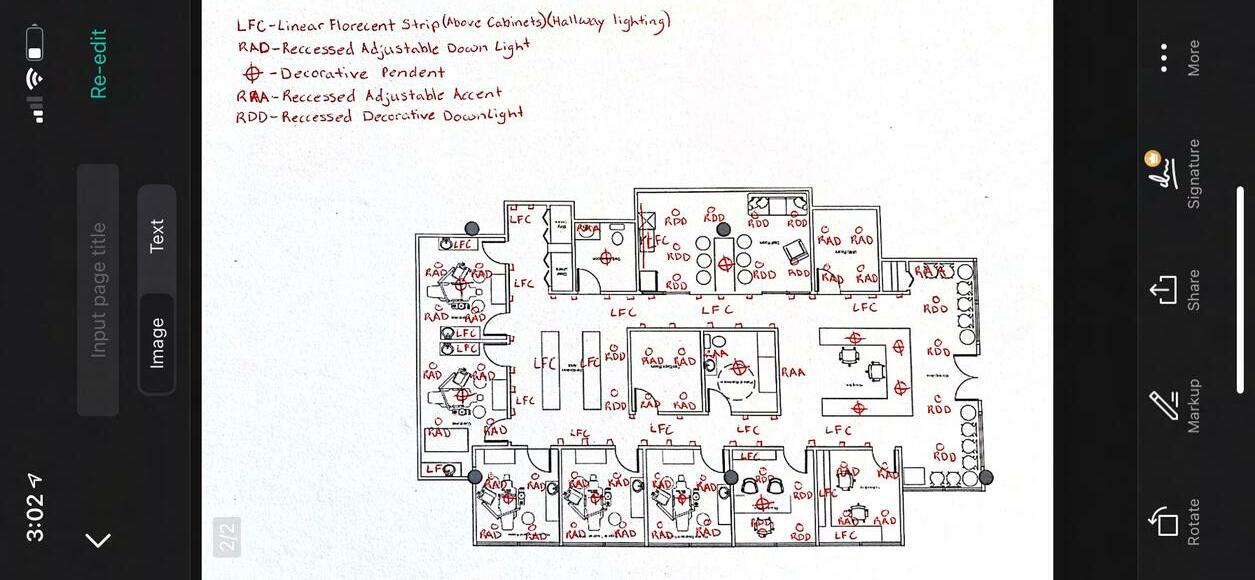 LFC-Linear Florecent Strip(Above Cabinets)(Hallway lighting)
RAD-Reccessed Adjustable Down Light
-Decorative Pendent
RAA-Reccessed Adjustable Accent
RDD-Reccessed Decorative DownLight
LFC
RAA
RDD RDD RDD RDD
LFC
RDD
RDD RDD
RDD
RAD RAD
RAD RAD
RAA
LFC
RAD RAD
LFC
RAD RAD
LFC LFC LFC
RDD
LFC
LFC
LFC LFC RDD
RAD RAD
RAA
RDD
RAD RAD
LFC
RDD RAD RAD
RDD
RAD RAD
LFC LFC LFC LFC
RDD
LFC
RAD RAD RAD RAD RAD RAD
LFC
RDD
RDD
LFC
RAD RAD
RAD RAD RAD RAD RAD RAD
RDD
RDD
RAD RAD
LFC
3:02
Input page title
Image
Text
Re-edit
2/2
More
Signature
Share
Markup
Rotate